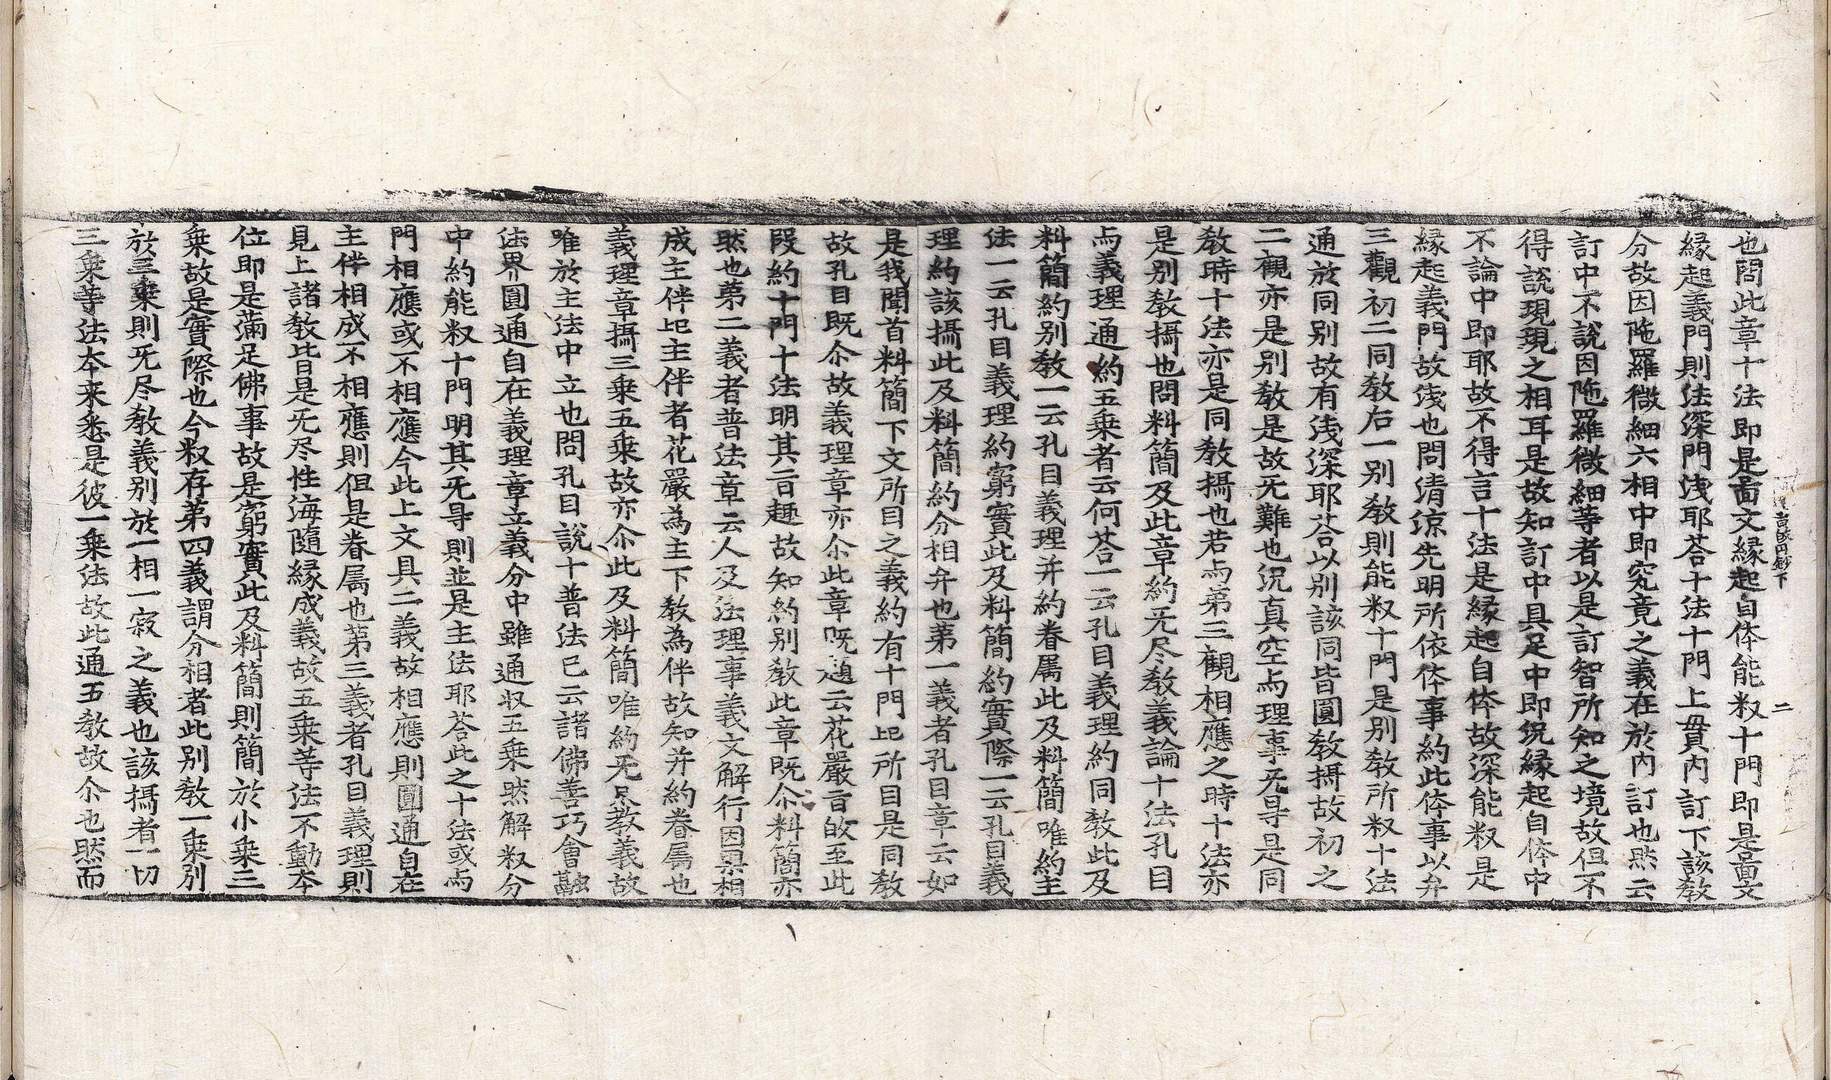 也問此章十法即是啚文緣起自体能収十門即是啚文
緣起義門則法深門淺耶荅十法十門上貫內訂下該教
分故因陁羅微細六相中即究竟之義在於內訂也然云
訂中不說因陁羅微細等者以是訂智所知之境故但不
得說現現之相耳是故知訂中具足中即況緣起自体中
不論中即耶故不得言十法是緣起自体故深能収是
緣起義門故淺也問清涼先明所依体事約此体事以弁
三觀初二同教后一別教則能収十門是別教所収十法
通於同別故有淺深耶荅以別該同皆圓教攝故初之
二觀亦是別教是故旡難也況真空与理事旡㝵是同
教時十法亦是同教攝也若与第三觀相應之時十法亦
是別教攝也問料簡及此章約旡尽教義論十法孔目
与義理通約五乘者云何荅一云孔目義理約同教此及
料簡約別教一云孔目義理并約眷屬此及料簡唯約主
法一云孔目義理約窮實此及料簡約實際一云孔目義
理約該攝此及料簡約分相弁也第一義者孔目章云如
是我聞首料簡下文所目之義約有十門㠯所目是同教
故孔目既尒故義理章亦尒此章旣題云花嚴旨故至此
段約十門十法明其旨趣故知約別教此章旣尒料簡亦
然也第二義者普法章云人及法理事義文解行因果相
成主伴㠯主伴者花嚴為主下教為伴故知并約眷屬也
義理章攝三乘五乘故亦尒此及料簡唯約旡尽教義故
唯於主法中立也問孔目說十普法已云諸佛善巧會融
法界圓通自在義理章立義分中雖通収五乘然解収分
中約能収十門明其旡㝵則並是主法耶荅此之十法或与
門相應或不相應今此上文具二義故相應則圓通自在
主伴相成不相應則但是眷屬也第三義者孔目義理則
見上諸教皆是旡尽性海隨緣成義故五乘等法不動本
位即是滿足佛事故是窮實此及料簡則簡於小乘三
乘故是實際也今収存第四義謂分相者此別教一乘別
於三乘則旡尽教義別於一相一寂之義也該攝者一切
三乘等法本来悉是彼一乘法故此通五教故尒也然而